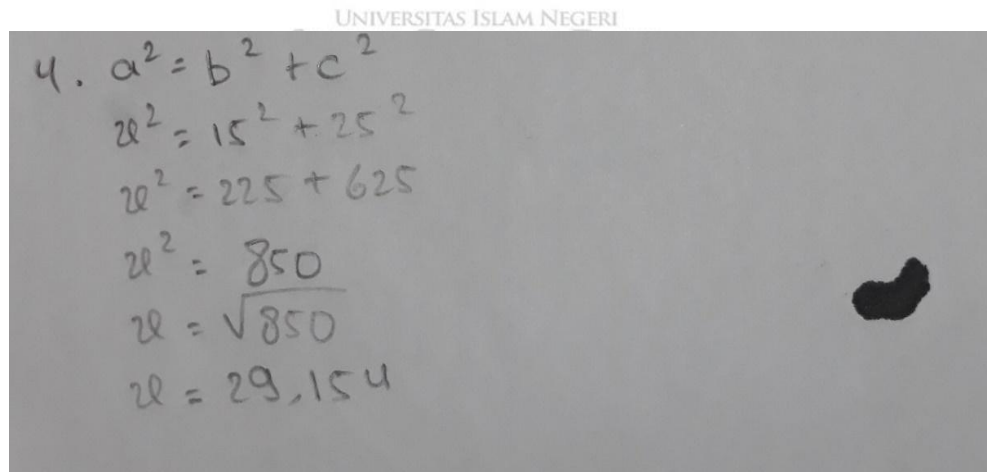 UNIVERSITAS ISLAM NEGERI
4. a² = b² + c²
x² = 15² + 25²
x² = 225 + 625
x² = 850
x = √850
x = 29,154